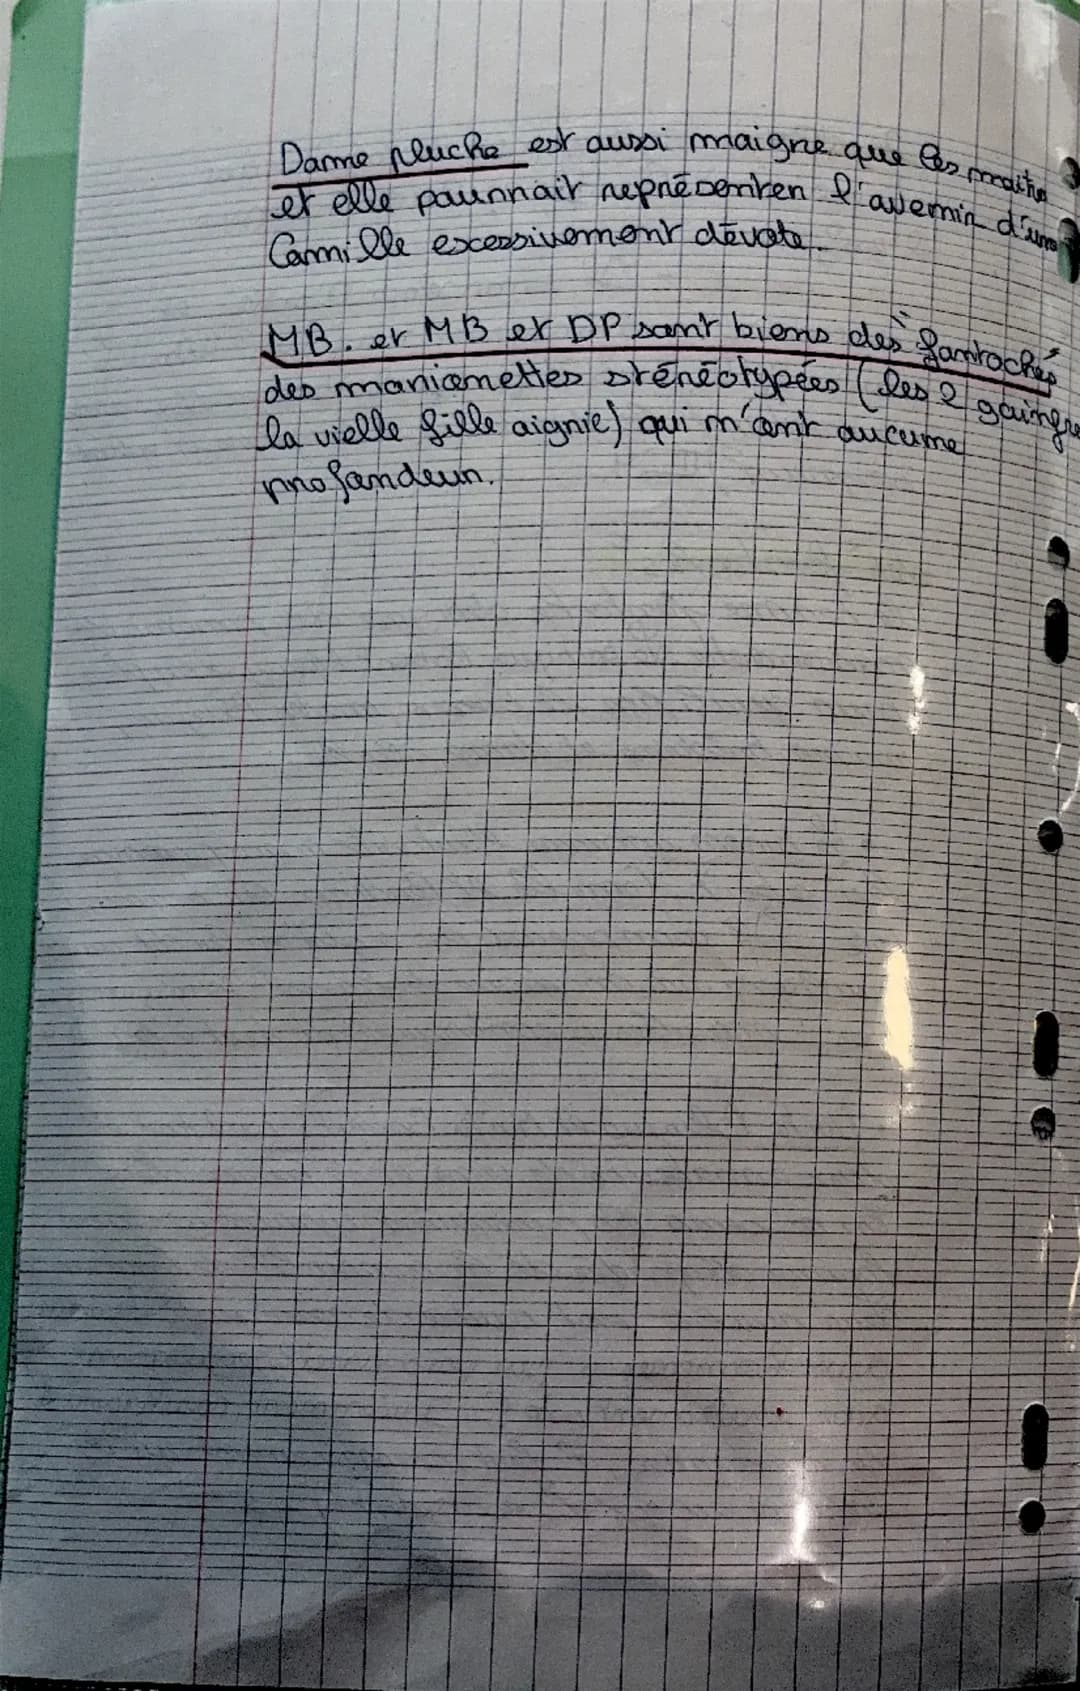 Dame pluche est aussi maigre que les maitre
et elle pourrait représenter l'avenir d'une
Camille excessivement dévote.
MB. et MB et DP sont biens des fantochés
des marionettes stéréotypées (les 2 goinfre
la vielle fille aigrie) qui n'ont aucune
profondeur.